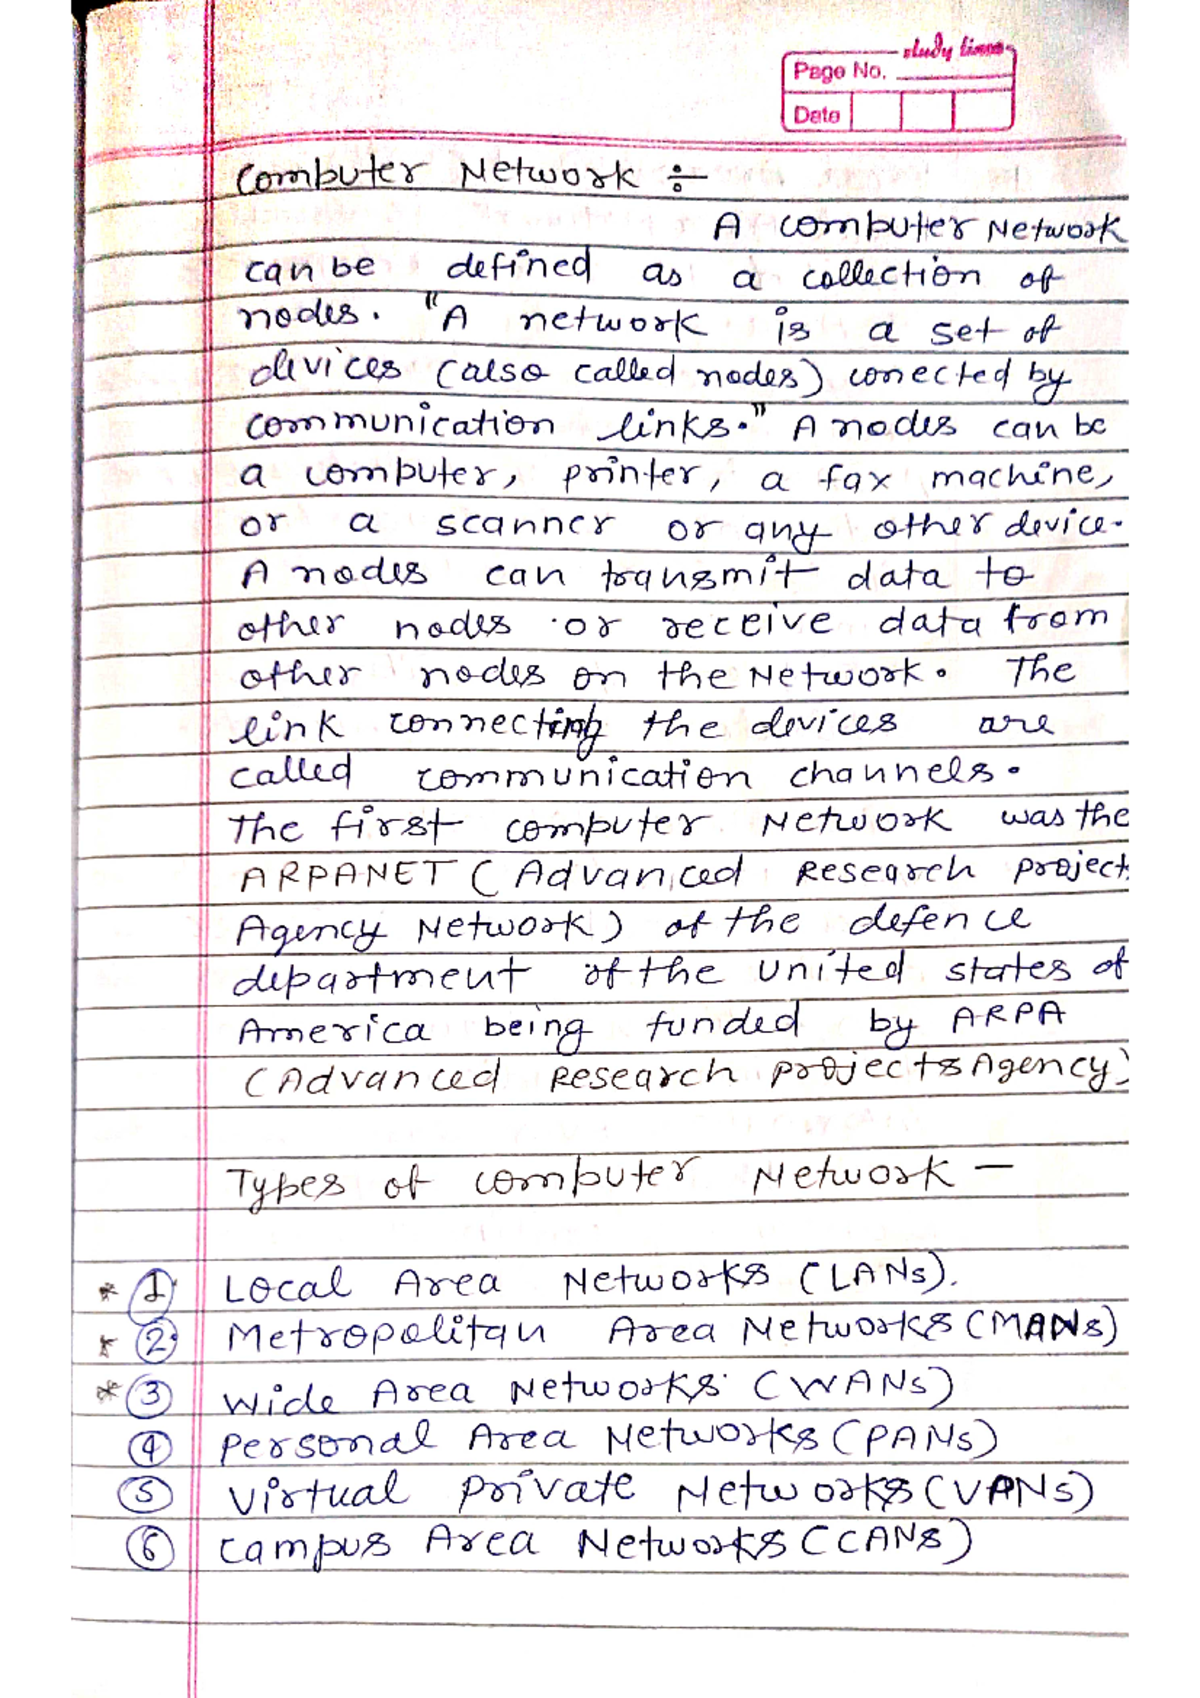 study time
Page No.
Date
Computer Network ÷
A computer Network
can be defined as a collection of
nodes. "A network is a set of
devices (also called nodes) conected by
communication links." A nodes can be
a computer, printer, a fax machine,
or a scanner or any other device.
A nodes can transmit data to
other nodes or receive data from
other nodes on the Network. The
link connecting the devices are
called communication channels.
The first computer Network was the
ARPANET (Advanced Research project
Agency Network) of the defence
department of the United states of
America being funded by ARPA
(Advanced Research projects Agency)
Types of computer Network —
* 1. Local Area Networks (LANs).
* 2. Metropolitan Area Networks (MANs)
* 3 Wide Area Networks (WANs)
4 Personal Area Networks (PANs)
5 Virtual Private Networks (VPNs)
6 Campus Area Networks (CANs)